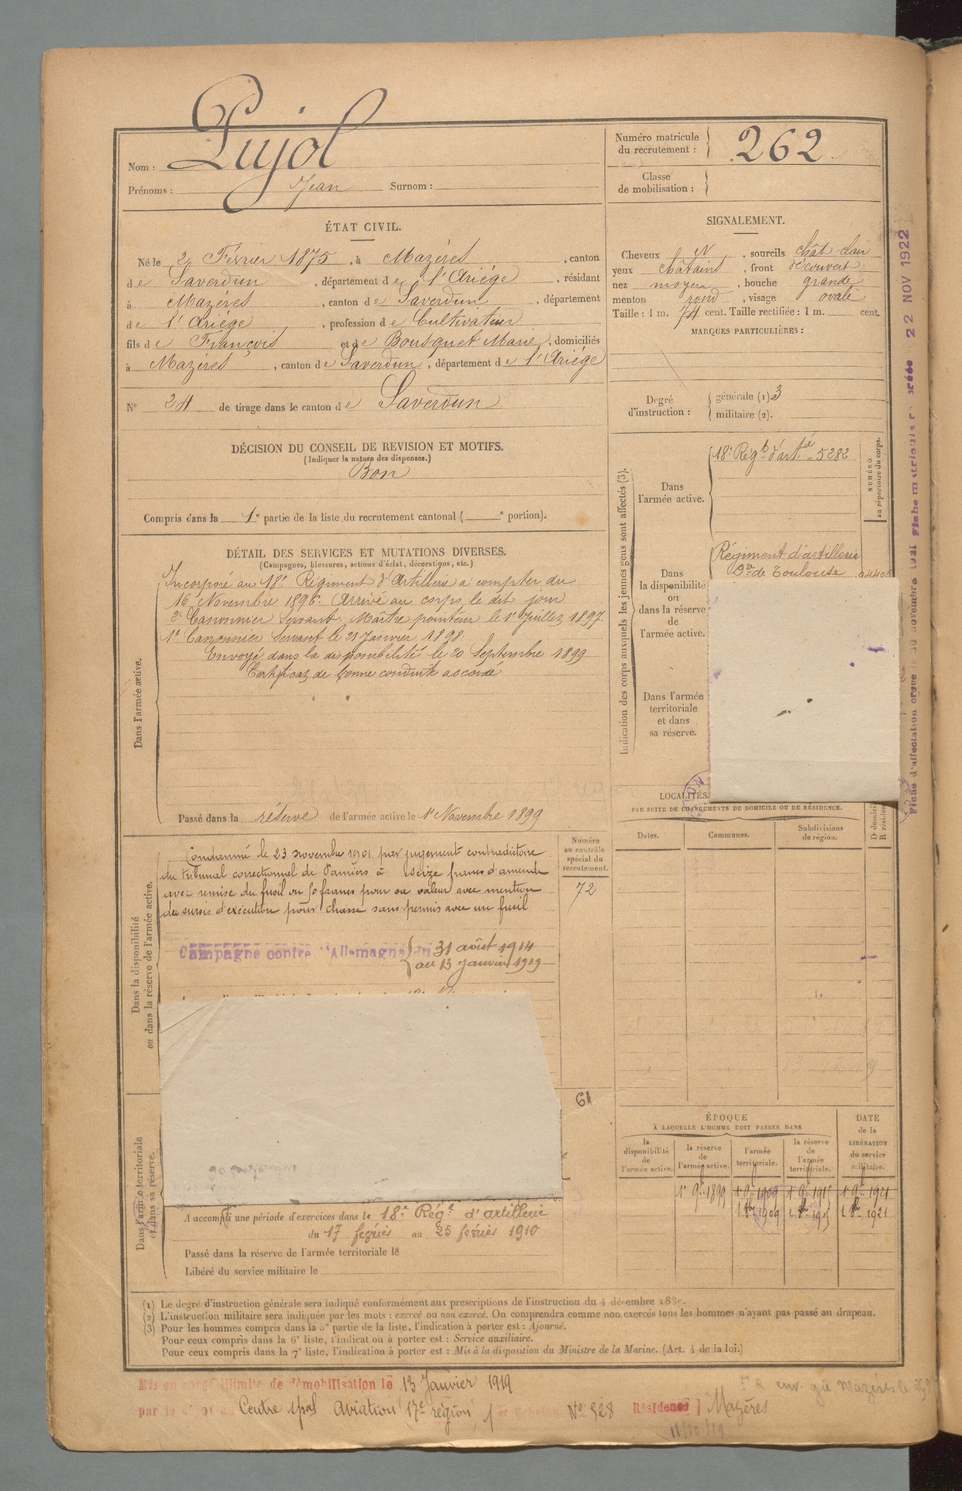 Nom : Pujol
Prénoms : Jean Surnom :
Numéro matricule du recrutement : 262
Classe de mobilisation :
ÉTAT CIVIL.
Né le 2 Février 1875, à Mazères, canton
de Saverdun, département de l'Ariège, résidant
à Mazères, canton de Saverdun, département
de l'Ariège, profession de Cultivateur
fils de François et de Bousquet Marie, domiciliés
à Mazères, canton de Saverdun, département de l'Ariège
N° 24 de tirage dans le canton de Saverdun
SIGNALEMENT.
Cheveux sourcils chât clair
yeux châtains, front découvert
nez moyen, bouche grande
menton rond, visage ovale
Taille : 1 m. 74 cent. Taille rectifiée : 1 m. cent.
MARQUES PARTICULIÈRES :
Degré d'instruction : générale (1) 3
militaire (2).
DÉCISION DU CONSEIL DE REVISION ET MOTIFS.
(Indiquer la nature des dispenses.)
Bon
Compris dans la 1e partie de la liste du recrutement cantonal ( e portion).
DÉTAIL DES SERVICES ET MUTATIONS DIVERSES.
(Campagnes, blessures, actions d'éclat, décorations, etc.)
Dans l'armée active.
Incorporé au 18e Régiment d'Artillerie à compter du
16 Novembre 1896. Arrivé au corps le dit jour
2e Canonnier Servant, Maître pointeur le 1er Juillet 1897
1er Canonnier Servant le 21 Janvier 1898
Envoyé dans la disponibilité le 20 Septembre 1899
Certificat de bonne conduite accordé
Passé dans la réserve de l'armée active le 1er Novembre 1899
Indication des corps auxquels les jeunes gens sont affectés (3).
Dans l'armée active.
18e Régt d'artie 5282
NUMÉRO au répertoire du corps.
Dans la disponibilité ou dans la réserve de l'armée active.
Régiment d'artillerie
de Toulouse
Dans l'armée territoriale et dans sa réserve.
LOCALITÉS
PAR SUITE DE CHANGEMENTS DE DOMICILE OU DE RÉSIDENCE.
Dates. Communes. Subdivisions de région.
Dans la disponibilité ou dans la réserve de l'armée active.
Condamné le 23 novembre 1901 par jugement contradictoire
du tribunal correctionnel de Pamiers à seize francs d'amende
avec remise du fusil ou 50 francs pour sa valeur avec mention
de sursis d'exécution pour chasse sans permis avec un fusil
Campagne contre l'Allemagne du 31 août 1914
au 13 Janvier 1919
Numéro au contrôle spécial du recrutement.
72
61
Dans l'armée territoriale et dans sa réserve.
A accompli une période d'exercices dans le 18e Régt d'artillerie
du 17 février au 25 février 1910
Passé dans la réserve de l'armée territoriale le
Libéré du service militaire le
ÉPOQUE
À LAQUELLE L'HOMME DOIT PASSER DANS
la disponibilité de l'armée active.
la réserve de l'armée active.
l'armée territoriale.
la réserve de l'armée territoriale.
DATE de la LIBÉRATION du service militaire.
1er 9bre 1899
(1) Le degré d'instruction générale sera indiqué conformément aux prescriptions de l'instruction du 4 décembre 1889.
(2) L'instruction militaire sera indiquée par les mots : exercé ou non exercé. On comprendra comme non exercés tous les hommes n'ayant pas passé au drapeau.
(3) Pour les hommes compris dans la 5e partie de la liste, l'indication à porter est : Ajourné.
Pour ceux compris dans la 6e liste, l'indication à porter est : Service auxiliaire.
Pour ceux compris dans la 7e liste, l'indication à porter est : Mis à la disposition du Ministre de la Marine. (Art. 4 de la loi.)
Mis en congé illimité de démobilisation le 13 Janvier 1919
par le Centre Aviation 17e région N° 828 Résidence Mazères
22 NOV 1922